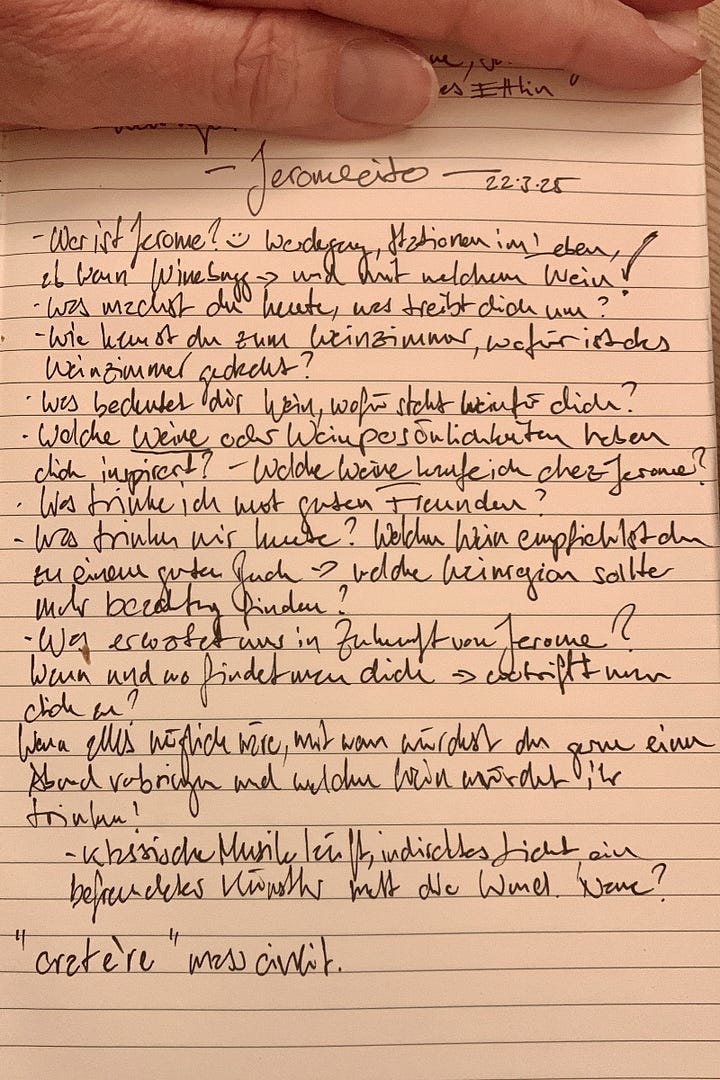 es Ettlin
- Jeromecito - 22.3.25
- Wer ist Jerome? Werdegang, Stationen im Leben,
ab wann Winebugg → und mit welchem Wein!
- Was machst du heute, was treibt dich um?
- Wie kamst du zum Weinzimmer, wofür ist das
Weinzimmer gedacht?
- Was bedeutet dir Wein, wofür steht Wein für dich?
- Welche Weine oder Weinpersönlichkeiten haben
dich inspiriert? - Welche Weine kaufe ich chez Jerome?
- Was trinke ich mit guten Freunden?
- Was trinken wir heute? Welchen Wein empfiehlst du
zu einem guten Buch → welche Weinregion sollte
mehr beachtung finden?
- Was erwartet uns in Zukunft von Jerome?
Wann und wo findet man dich → wo trifft man
dich an?
Wenn alles möglich wäre, mit wem würdest du gerne einen
Abend verbringen und welchen Wein würdet ihr
trinken!
- klassische Musik läuft, indirektes Licht, ein
befreundeter Künstler malt die Wand. Wein?
"cratère" massivlit.